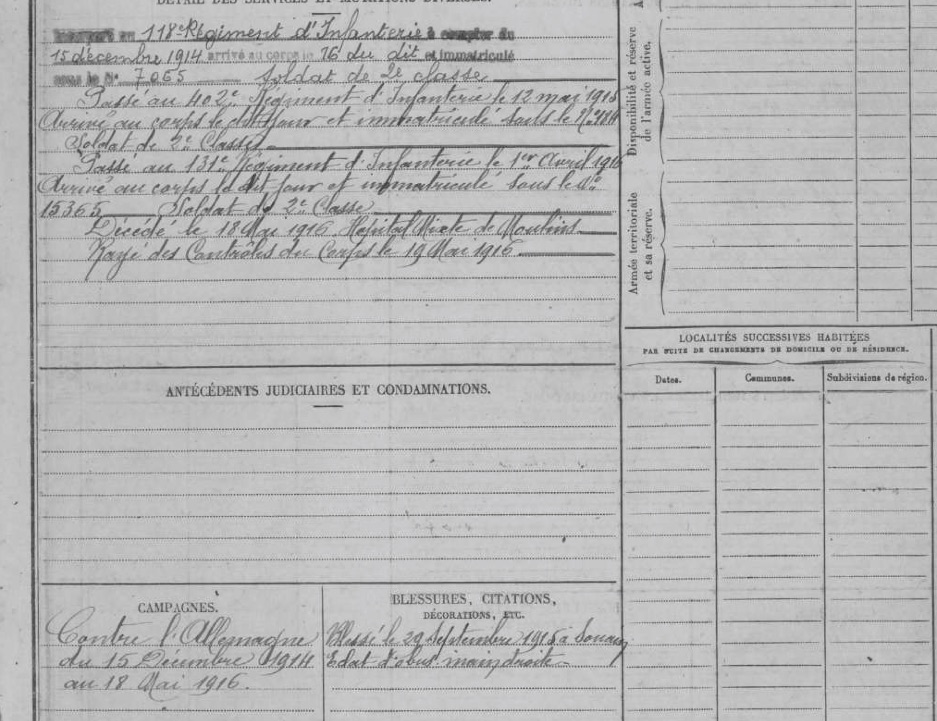 DÉTAIL DES SERVICES ET MUTATIONS DIVERSES.
Incorporé au 118e Régiment d'Infanterie à compter du
15 décembre 1914 arrivé au corps le 16 du dit et immatriculé
sous le N° 7065 Soldat de 2e classe
Passé au 402e Régiment d'Infanterie le 12 mai 1915
Arrivé au corps le dit jour et immatricule sous le N°
Soldat de 2e Classe
Passé au 131e Régiment d'Infanterie le 1er Avril 1916
Arrivé au corps le dit jour et immatriculé sous le N°
15365 Soldat de 2e Classe
Décédé le 18 Mai 1916 Hôpital Mixte de Moulins
Rayé des Contrôles du Corps le 19 Mai 1916
Disponibilité et réserve
de l'armée active.
Armée territoriale
et sa réserve.
LOCALITÉS SUCCESSIVES HABITÉES
PAR SUITE DE CHANGEMENTS DE DOMICILE OU DE RÉSIDENCE.
Dates. Communes. Subdivisions de région.
ANTÉCÉDENTS JUDICIAIRES ET CONDAMNATIONS.
CAMPAGNES.
Contre l'Allemagne
du 15 Décembre 1914
au 18 Mai 1916.
BLESSURES, CITATIONS,
DÉCORATIONS, ETC.
Blessé le 29 Septembre 1915 à Souain
Eclat d'obus main droite